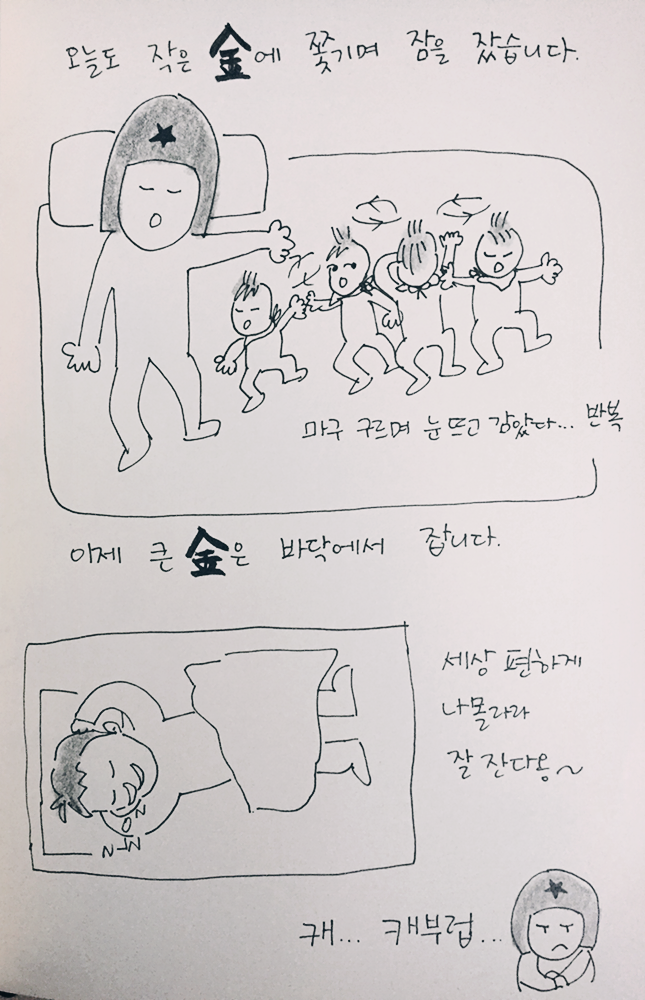 오늘도 작은 金에 쫓기며 잠을 잤습니다.
마구 구르며 눈뜨고 감았다... 반복
이제 큰 金은 바닥에서 잡니다.
세상 편하게
나몰라라
잘 잔다용~
N
N
N
캐... 캐부럽...